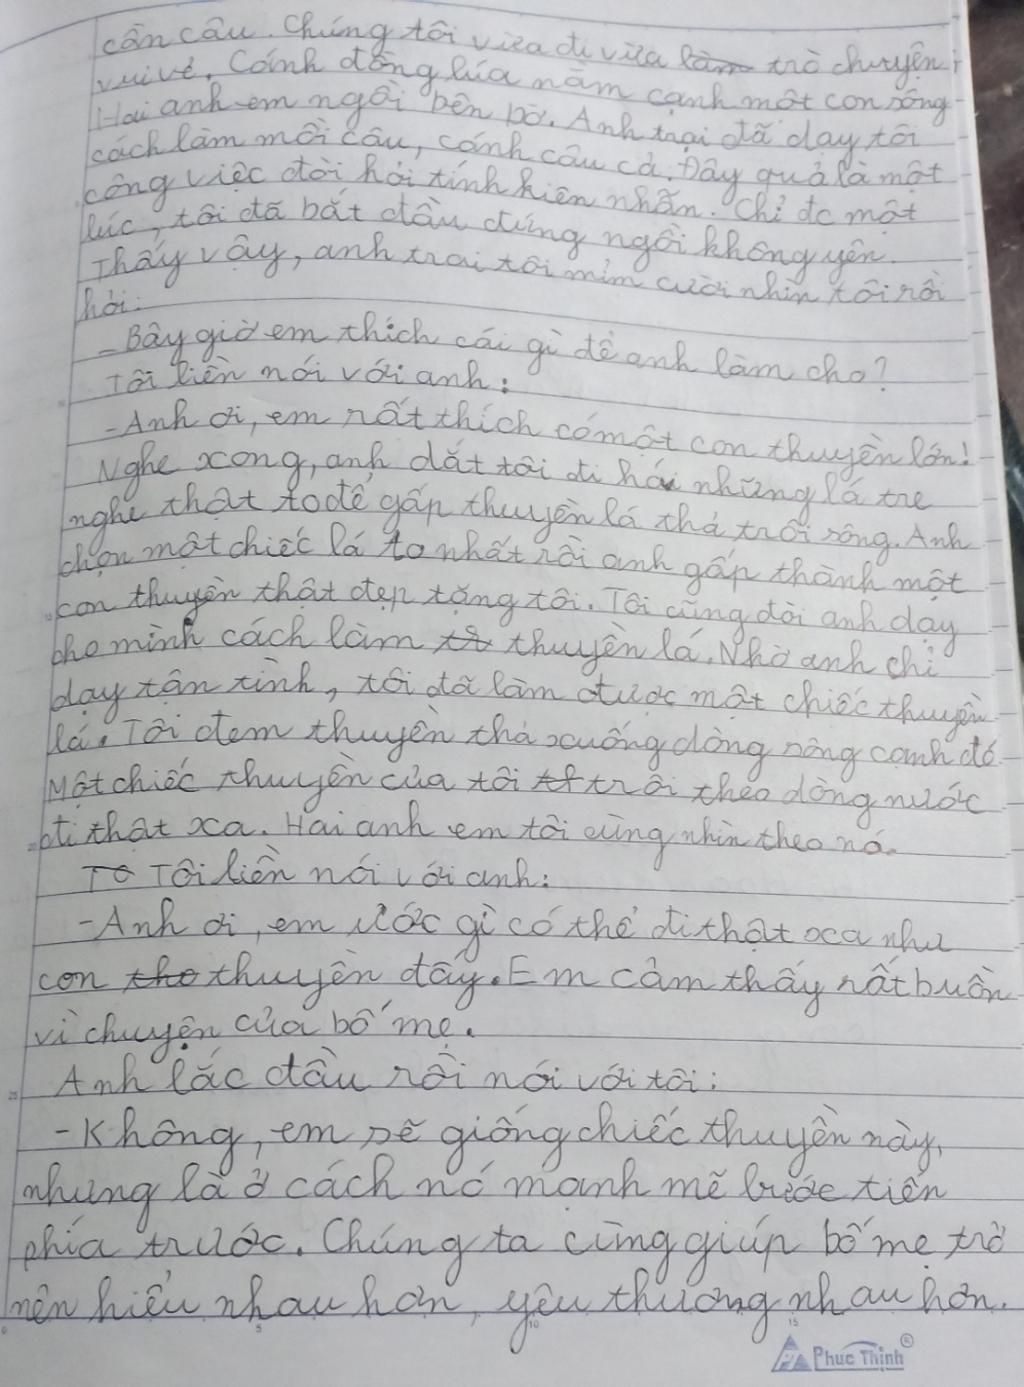 cần câu. Chúng tôi vừa đi vừa làm trò chuyện
vui vẻ. Cánh đồng lúa nằm cạnh một con sông
Hai anh em ngồi bên bờ. Anh trại đã dạy tôi
cách làm mồi câu, cánh câu cá. Đây quả là một
công việc đòi hỏi tính kiên nhẫn. Chỉ đc một
lúc, tôi đã bắt đầu đứng ngồi không yên.
Thấy vậy, anh trai tôi mỉm cười nhìn tôi rồi
hỏi:
- Bây giờ em thích cái gì để anh làm cho?
Tôi liền nói với anh:
- Anh ơi, em rất thích có một con thuyền lớn!
Nghe xong, anh dắt tôi đi hái những lá tre
nghe thật to để gấp thuyền lá thả trôi sông. Anh
chọn một chiếc lá to nhất rồi anh gấp thành một
con thuyền thật đẹp tặng tôi. Tôi cũng đòi anh dạy
cho mình cách làm thuyền lá. Nhờ anh chỉ
dạy tận tình, tôi đã làm được một chiếc thuyền
lá. Tôi đem thuyền thả xuống dòng sông cạnh đó
Một chiếc thuyền của tôi trôi theo dòng nước
đi thật xa. Hai anh em tôi cùng nhìn theo nó.
Tô Tôi liền nói với anh:
- Anh ơi, em ước gì có thể đi thật xa như
con tho thuyền đấy. Em cảm thấy rất buồn
vì chuyện của bố mẹ.
Anh lắc đầu rồi nói với tôi:
- Không, em sẽ giống chiếc thuyền này,
nhưng là ở cách nó mạnh mẽ bước tiến
phía trước. Chúng ta cùng giúp bố mẹ trở
nên hiểu nhau hơn, yêu thương nhau hơn.
5 10 15
Phuc Thinh ®